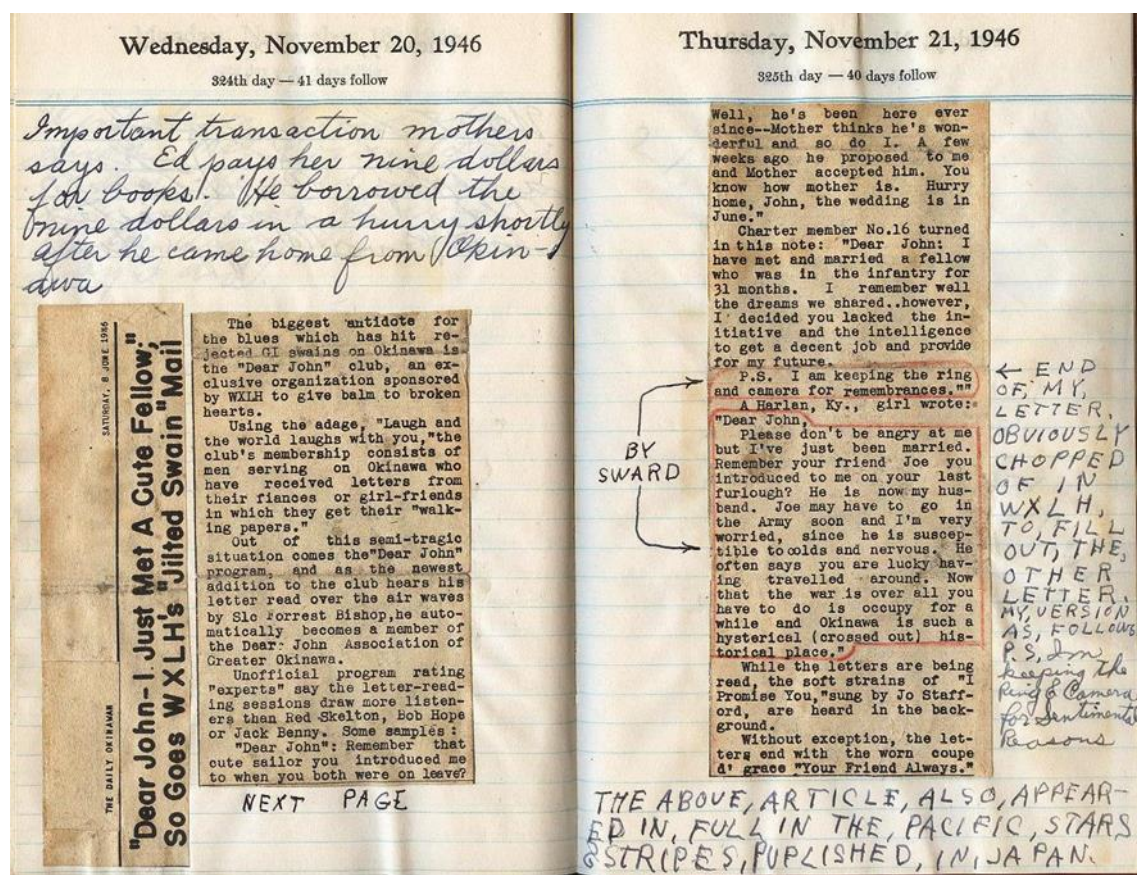 Wednesday, November 20, 1946
324th day — 41 days follow
Important transaction mothers
says. Ed pays her nine dollars
for books. He borrowed the
nine dollars in a hurry shortly
after he came home from Okin-
awa
THE DAILY OKINAWAN
SATURDAY, 8 JUNE 1946
"Dear John-I Just Met A Cute Fellow;"
So Goes WXLH's "Jilted Swain" Mail
The biggest antidote for
the blues which has hit re-
jected GI swains on Okinawa is
the "Dear John" club, an ex-
clusive organization sponsored
by WXLH to give balm to broken
hearts.
Using the adage, "Laugh and
the world laughs with you,"the
club's membership consists of
men serving on Okinawa who
have received letters from
their fiances or girl-friends
in which they get their "walk-
ing papers."
Out of this semi-tragic
situation comes the"Dear John"
program, and as the newest
addition to the club hears his
letter read over the air waves
by Slc Forrest Bishop,he auto-
matically becomes a member of
the Dear John Association of
Greater Okinawa.
Unofficial program rating
"experts" say the letter-read-
ing sessions draw more listen-
ers than Red Skelton, Bob Hope
or Jack Benny. Some samples:
"Dear John": Remember that
cute sailor you introduced me
to when you both were on leave?
NEXT PAGE
Thursday, November 21, 1946
325th day — 40 days follow
Well, he's been here ever
since--Mother thinks he's won-
derful and so do I. A few
weeks ago he proposed to me
and Mother accepted him. You
know how mother is. Hurry
home, John, the wedding is in
June."
Charter member No.16 turned
in this note: "Dear John: I
have met and married a fellow
who was in the infantry for
31 months. I remember well
the dreams we shared..however,
I decided you lacked the in-
itiative and the intelligence
to get a decent job and provide
for my future.
P.S. I am keeping the ring
and camera for remembrances.""
A Harlan, Ky., girl wrote:
"Dear John,
Please don't be angry at me
but I've just been married.
Remember your friend Joe you
introduced to me on your last
furlough? He is now my hus-
band. Joe may have to go in
the Army soon and I'm very
worried, since he is suscep-
tible to colds and nervous. He
often says you are lucky hav-
ing travelled around. Now
that the war is over all you
have to do is occupy for a
while and Okinawa is such a
hysterical (crossed out) his-
torical place."
While the letters are being
read, the soft strains of "I
Promise You,"sung by Jo Staff-
ord, are heard in the back-
ground.
Without exception, the let-
ters end with the worn coupe
d' grace "Your Friend Always."
BY
SWARD
← END
OF, MY,
LETTER.
OBVIOUSLY
CHOPPED
OF IN
WXLH,
TO, FILL
OUT, THE,
OTHER
LETTER.
MY, VERSION
AS, FOLLOWS
P.S. Im
keeping the
Ring & Camera
for Sentimental
Reasons
THE ABOVE, ARTICLE, ALSO, APPEAR-
ED IN, FULL IN THE, PACIFIC, STARS
& STRIPES, PUPLISHED, IN, JAPAN.